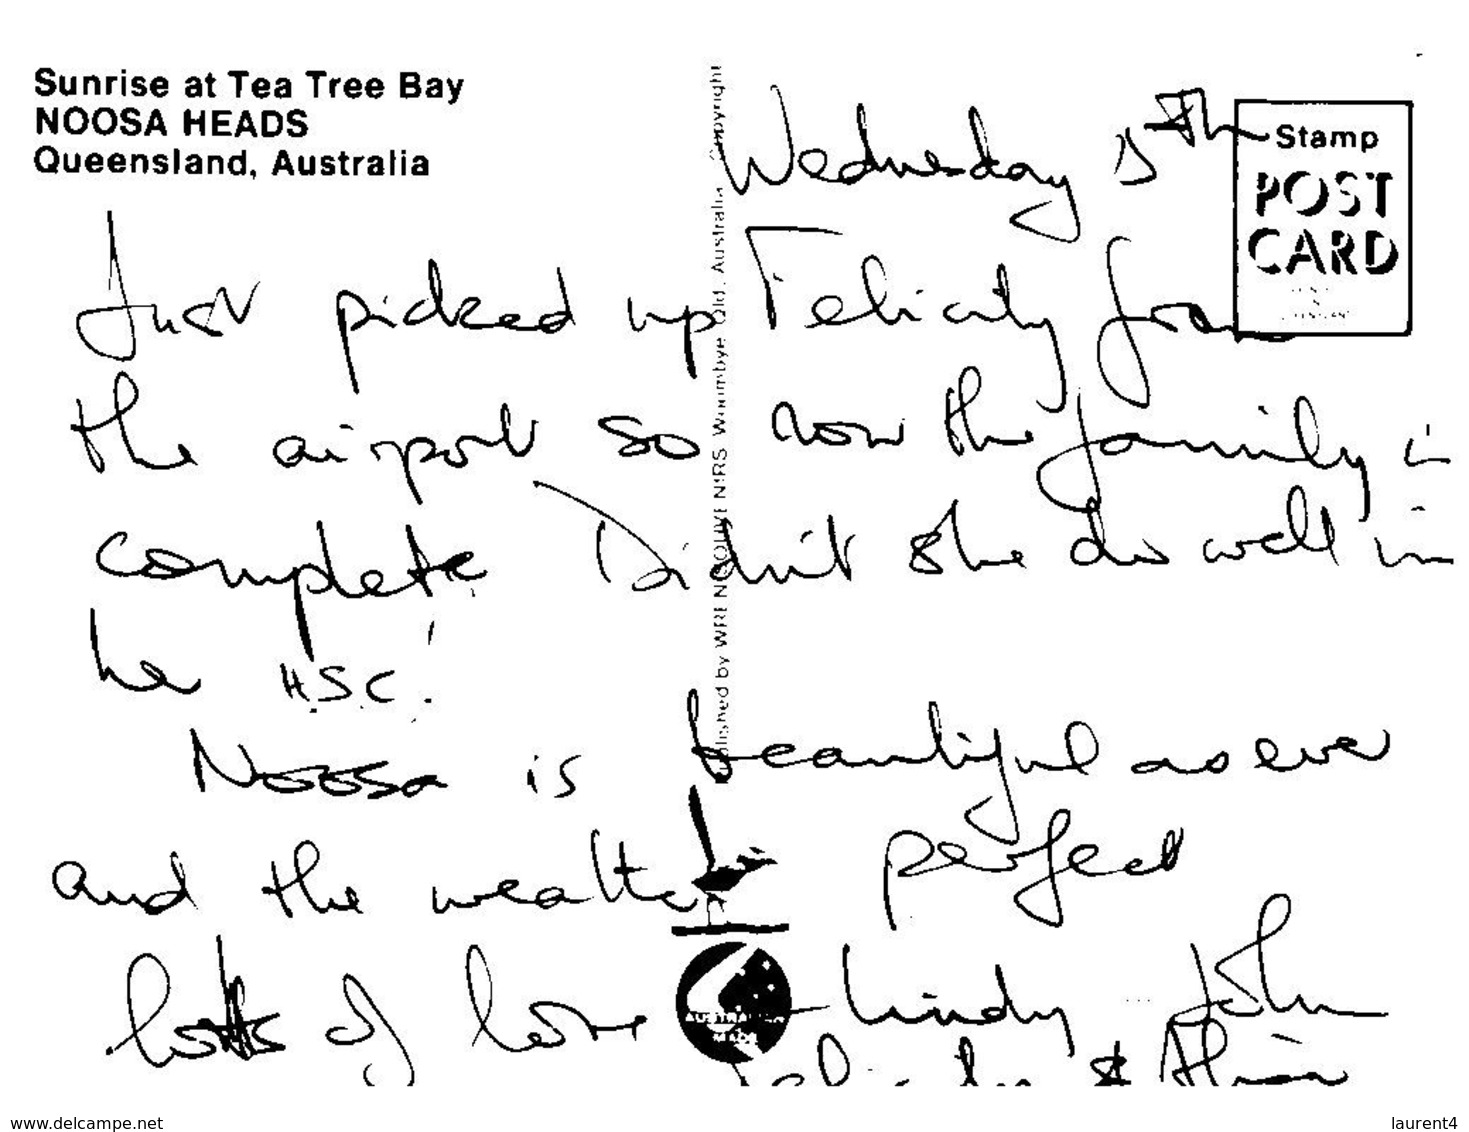 Sunrise at Tea Tree Bay
NOOSA HEADS
Queensland, Australia
Stamp
POST
CARD
Published by WREN SOUVENIRS Woombye Qld. Australia Copyright
Wednesday 15th
Just picked up Felicity from
the airport so now the family is
complete Didn't she do well in
her HSC!
Noosa is beautiful as ever
and the weather perfect
Lots of love Lindy John
Felicity &
AUSTRALIAN
MADE
www.delcampe.net
laurent4